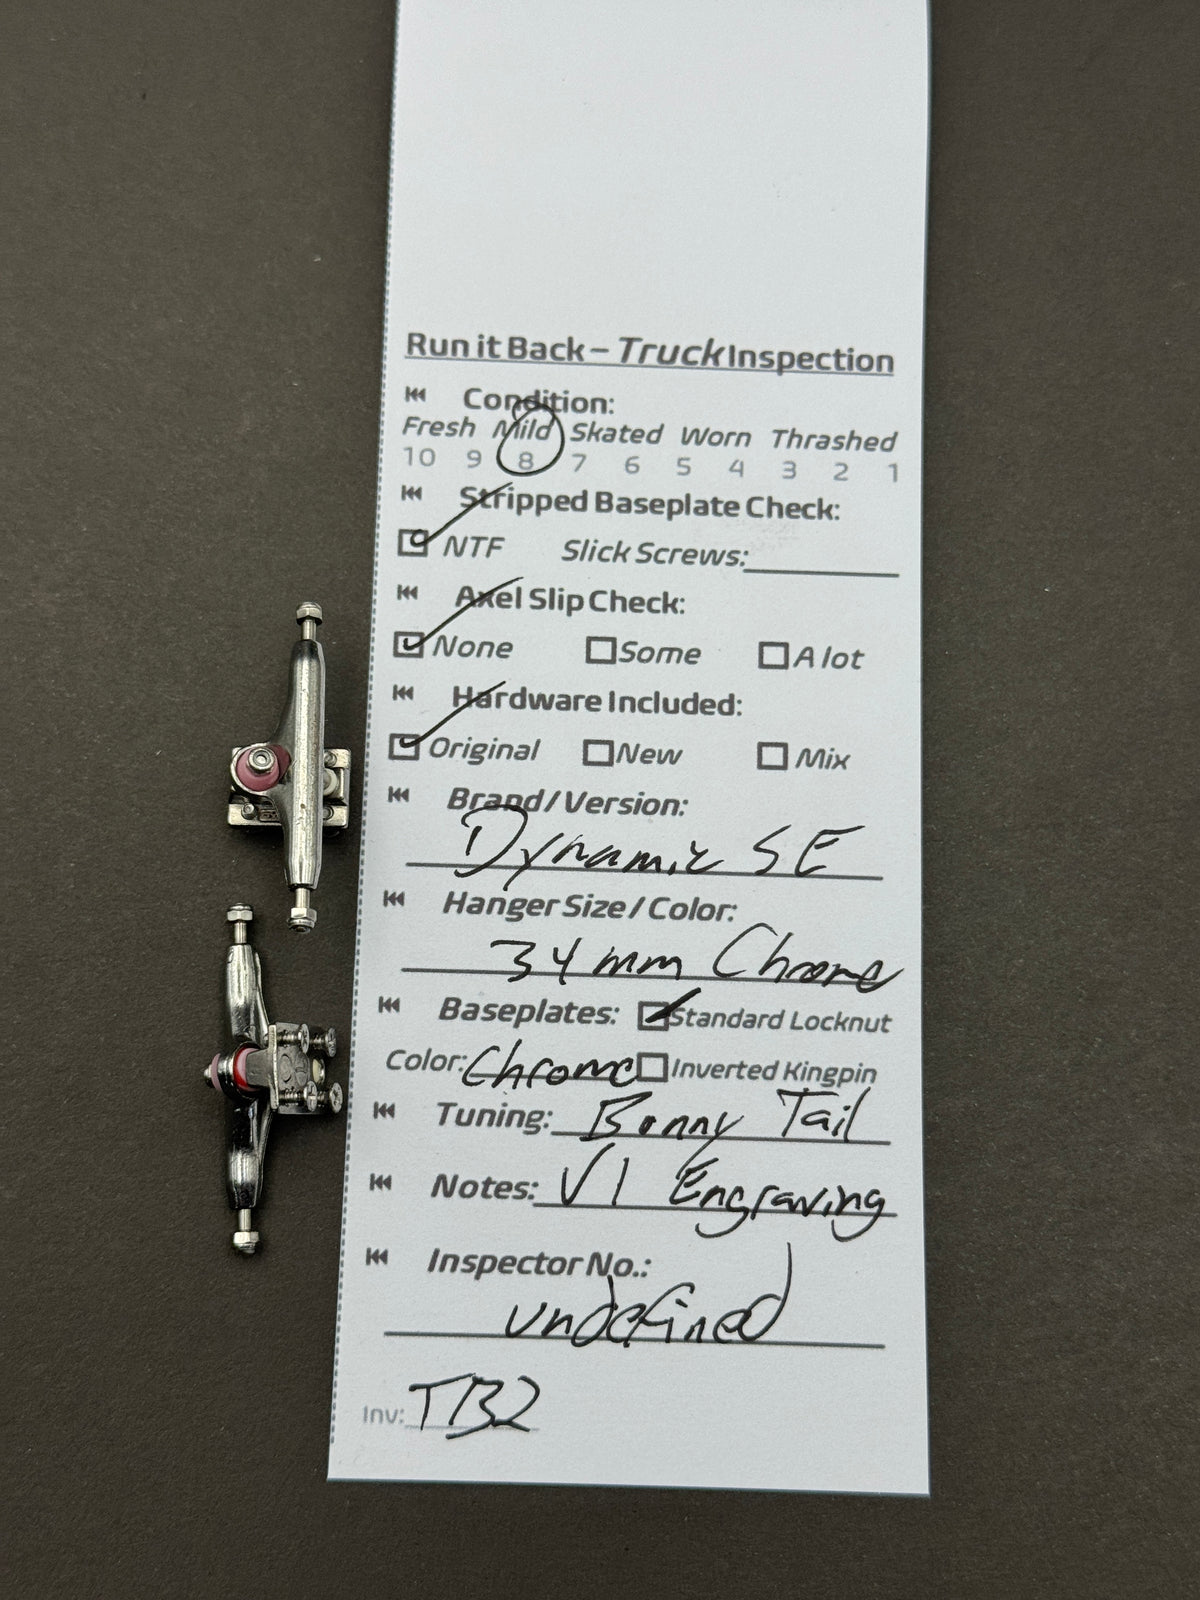 Run it Back – Truck Inspection
Condition:
Fresh Mild Skated Worn Thrashed
10 9 8 7 6 5 4 3 2 1
Stripped Baseplate Check:
NTF Slick Screws:
Axel Slip Check:
None Some A lot
Hardware Included:
Original New Mix
Brand/Version:
Dynamic SE
Hanger Size/Color:
34mm Chrome
Baseplates: Standard Locknut
Color: Chrome Inverted Kingpin
Tuning: Bonny Tail
Notes: V1 Engraving
Inspector No.:
undefined
Inv: TB2